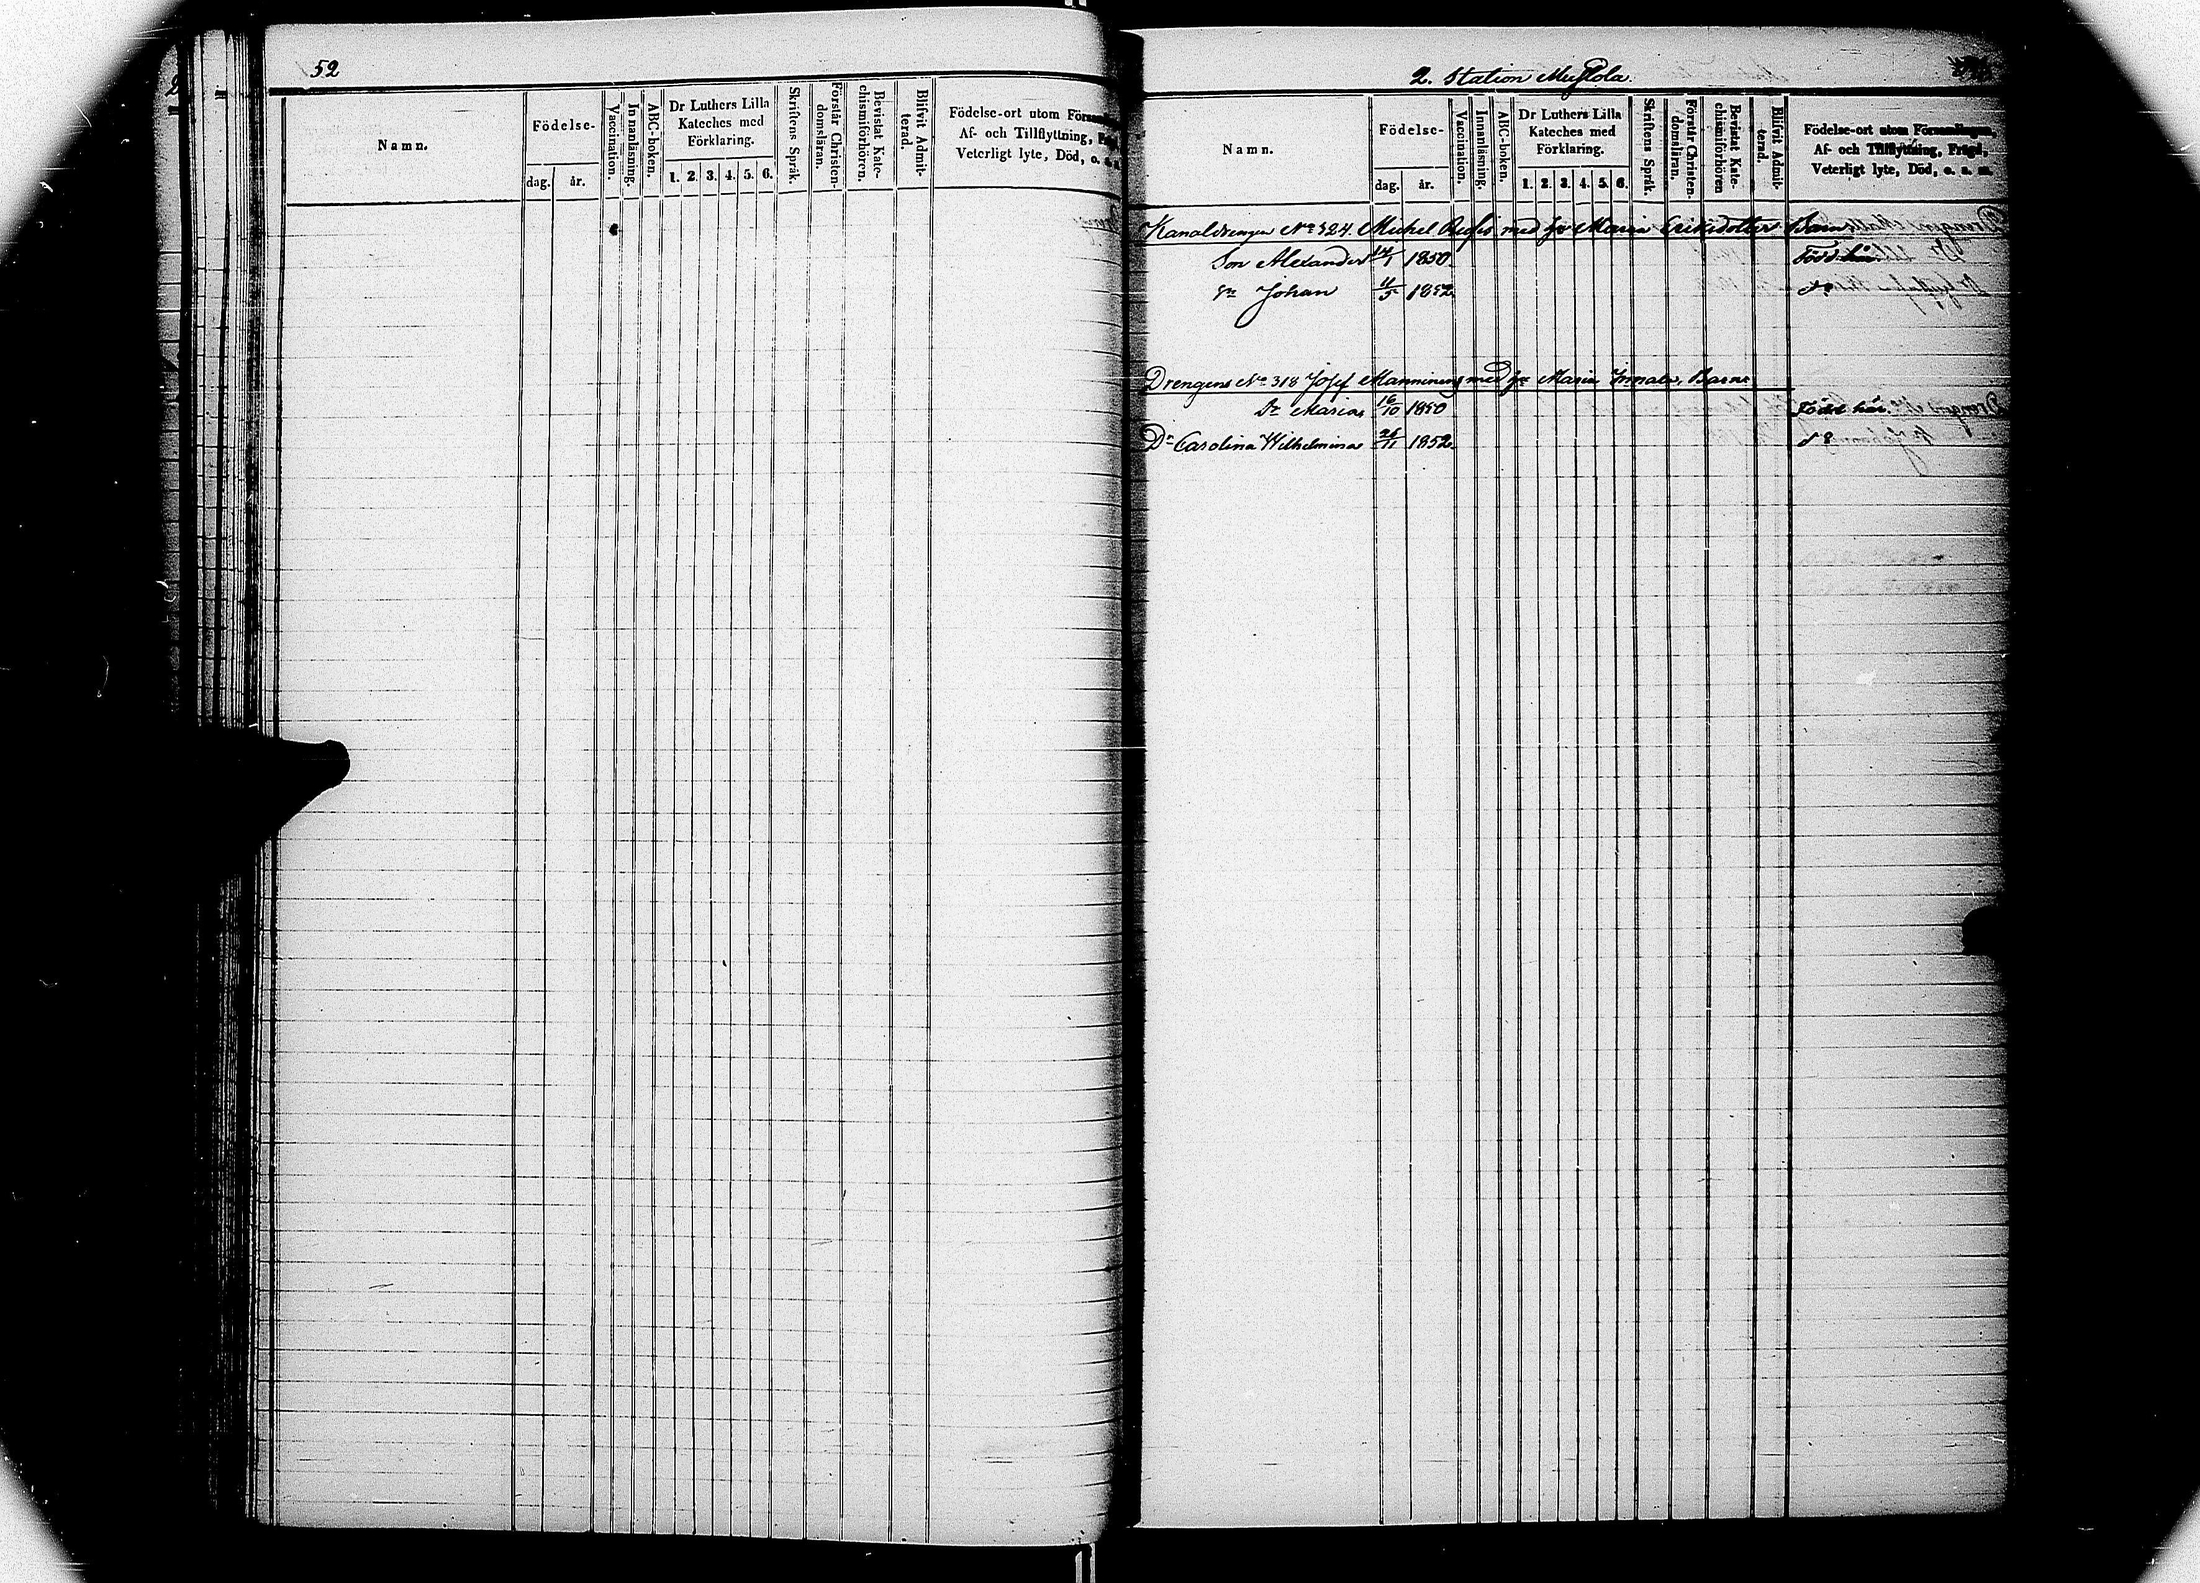 52
Namn.
Födelse-
dag.
år.
Vaccination.
Innanläsning.
ABC-boken.
Dr Luthers Lilla
Kateches med
Förklaring.
1. 2. 3. 4. 5. 6.
Skriftens Språk.
Förstår Christen-
domsläran.
Bevistat Kate-
chismiförhören.
Blifvit Admit-
terad.
Födelse-ort utom
Af- och Tillflyttning,
Veterligt lyte, Död, o. s.
2. Station Mustola.
Namn.
Födelse-
dag.
år.
Vaccination.
Innanläsning.
ABC-boken.
Dr Luthers Lilla
Kateches med
Förklaring.
1. 2. 3. 4. 5. 6.
Skriftens Språk.
Förstår Christen-
domsläran.
Bevistat Kate-
chismiförhören
Blifvit Admit-
terad.
Födelse-ort utom Församlingen,
Af- och Tillflyttning, Frägd,
Veterligt lyte, Död, o. s. m.
Kanaldrengen No 324. Michel med Maria Eriksdotter Barn
Son Alexander 14/1 1850. Född här.
Sn Johan 11/5 1852. do
Drengens No 318 Josef Manninens med Maria Barn
Dr Maria 16/10 1850 Född här.
Dr Carolina Wilhelmina 25/11 1852. do